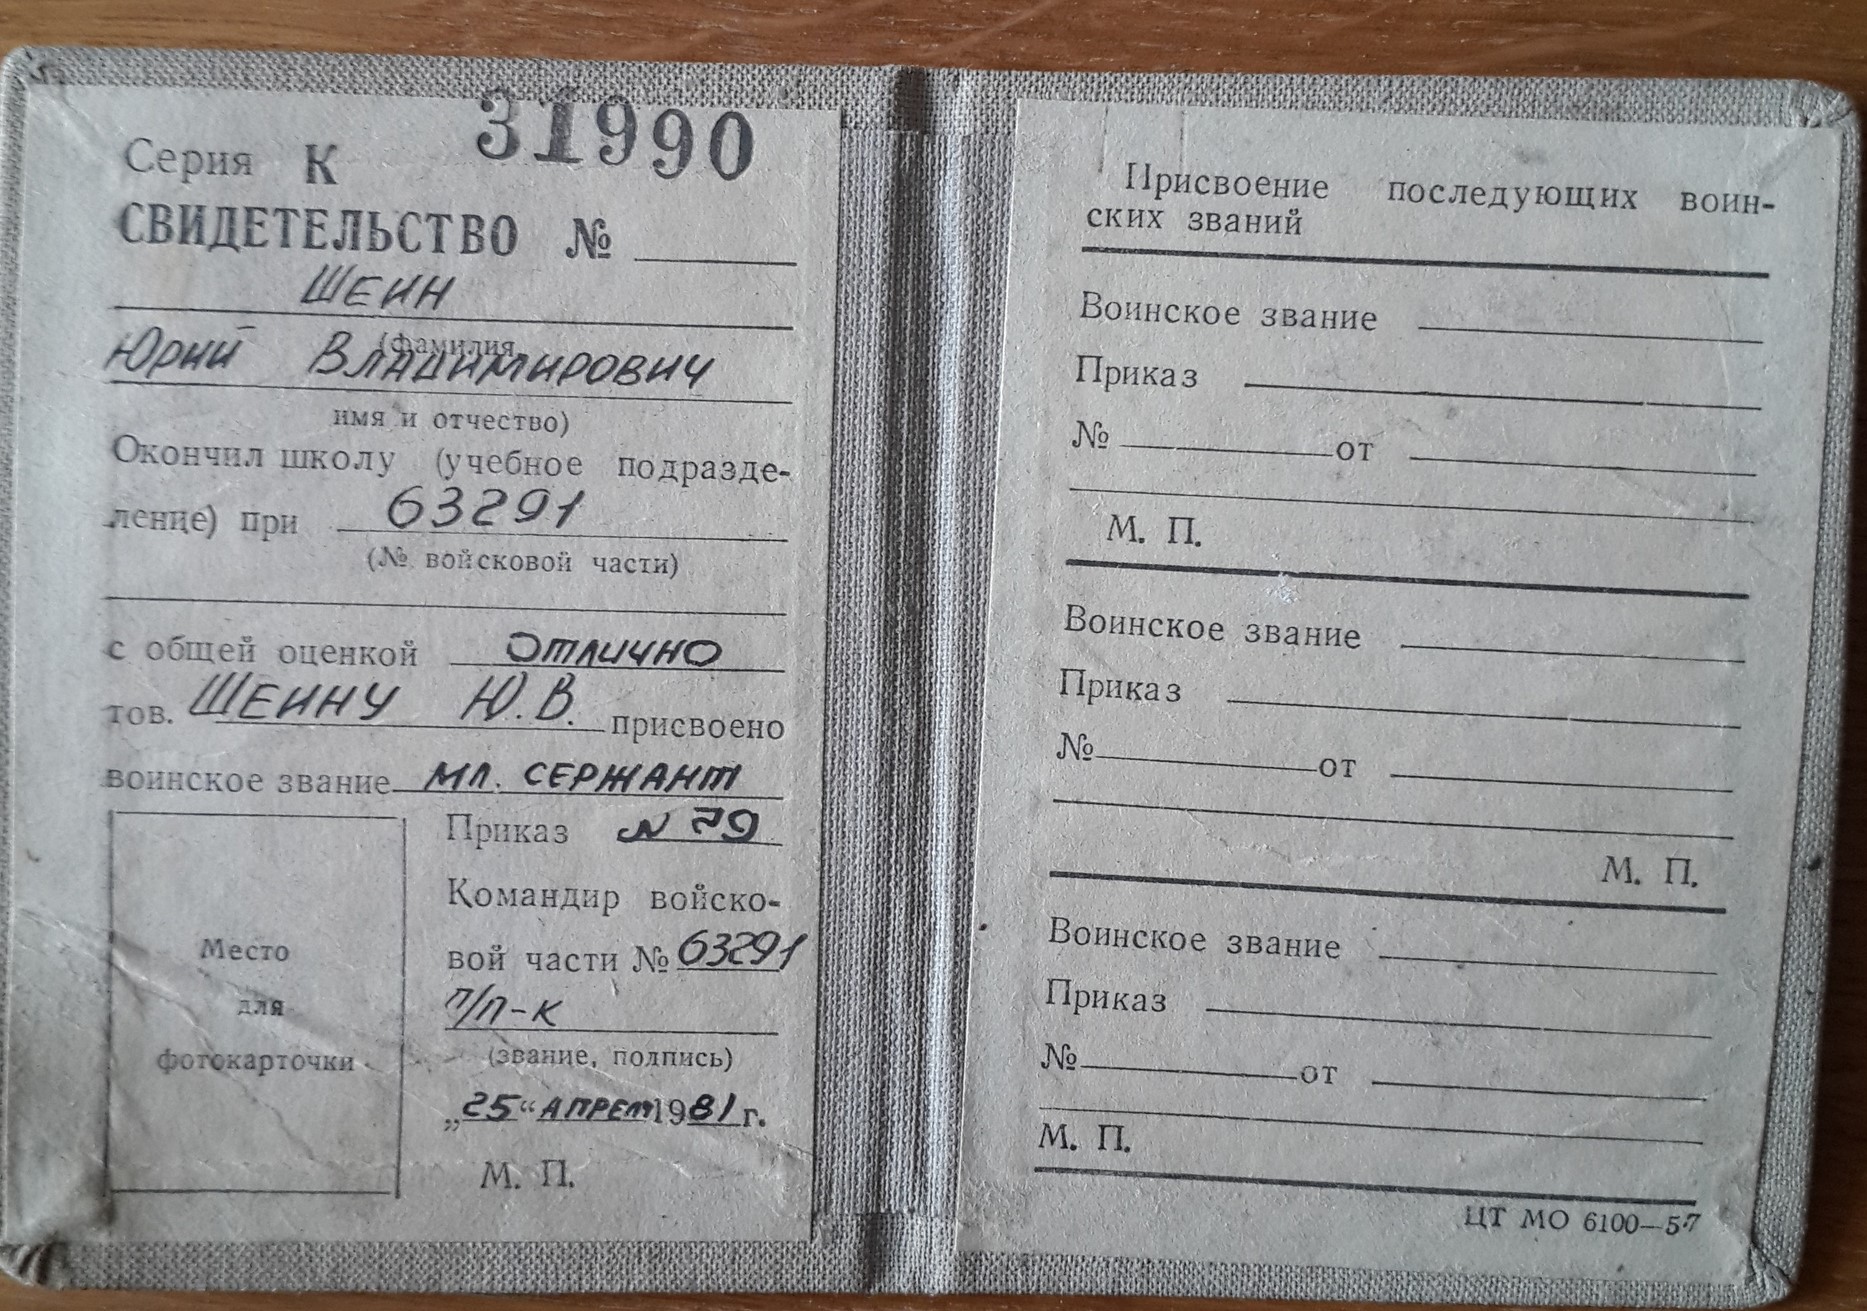 31990
Серия К
СВИДЕТЕЛЬСТВО №
ШЕИН
(фамилия,
Юрий Владимирович
имя и отчество)
Окончил школу (учебное подразде-
ление) при 63291
(№ войсковой части)
с общей оценкой отлично
тов. ШЕИНУ Ю.В. присвоено
воинское звание мл. сержант
Приказ № 79
Командир войско-
вой части № 63291
п/п-к
(звание, подпись)
„25“ апреля 1981 г.
М. П.
Место
для
фотокарточки
Присвоение последующих воин-
ских званий
Воинское звание
Приказ
№ от
М. П.
Воинское звание
Приказ
№ от
М. П.
Воинское звание
Приказ
№ от
М. П.
ЦТ МО 6100—57